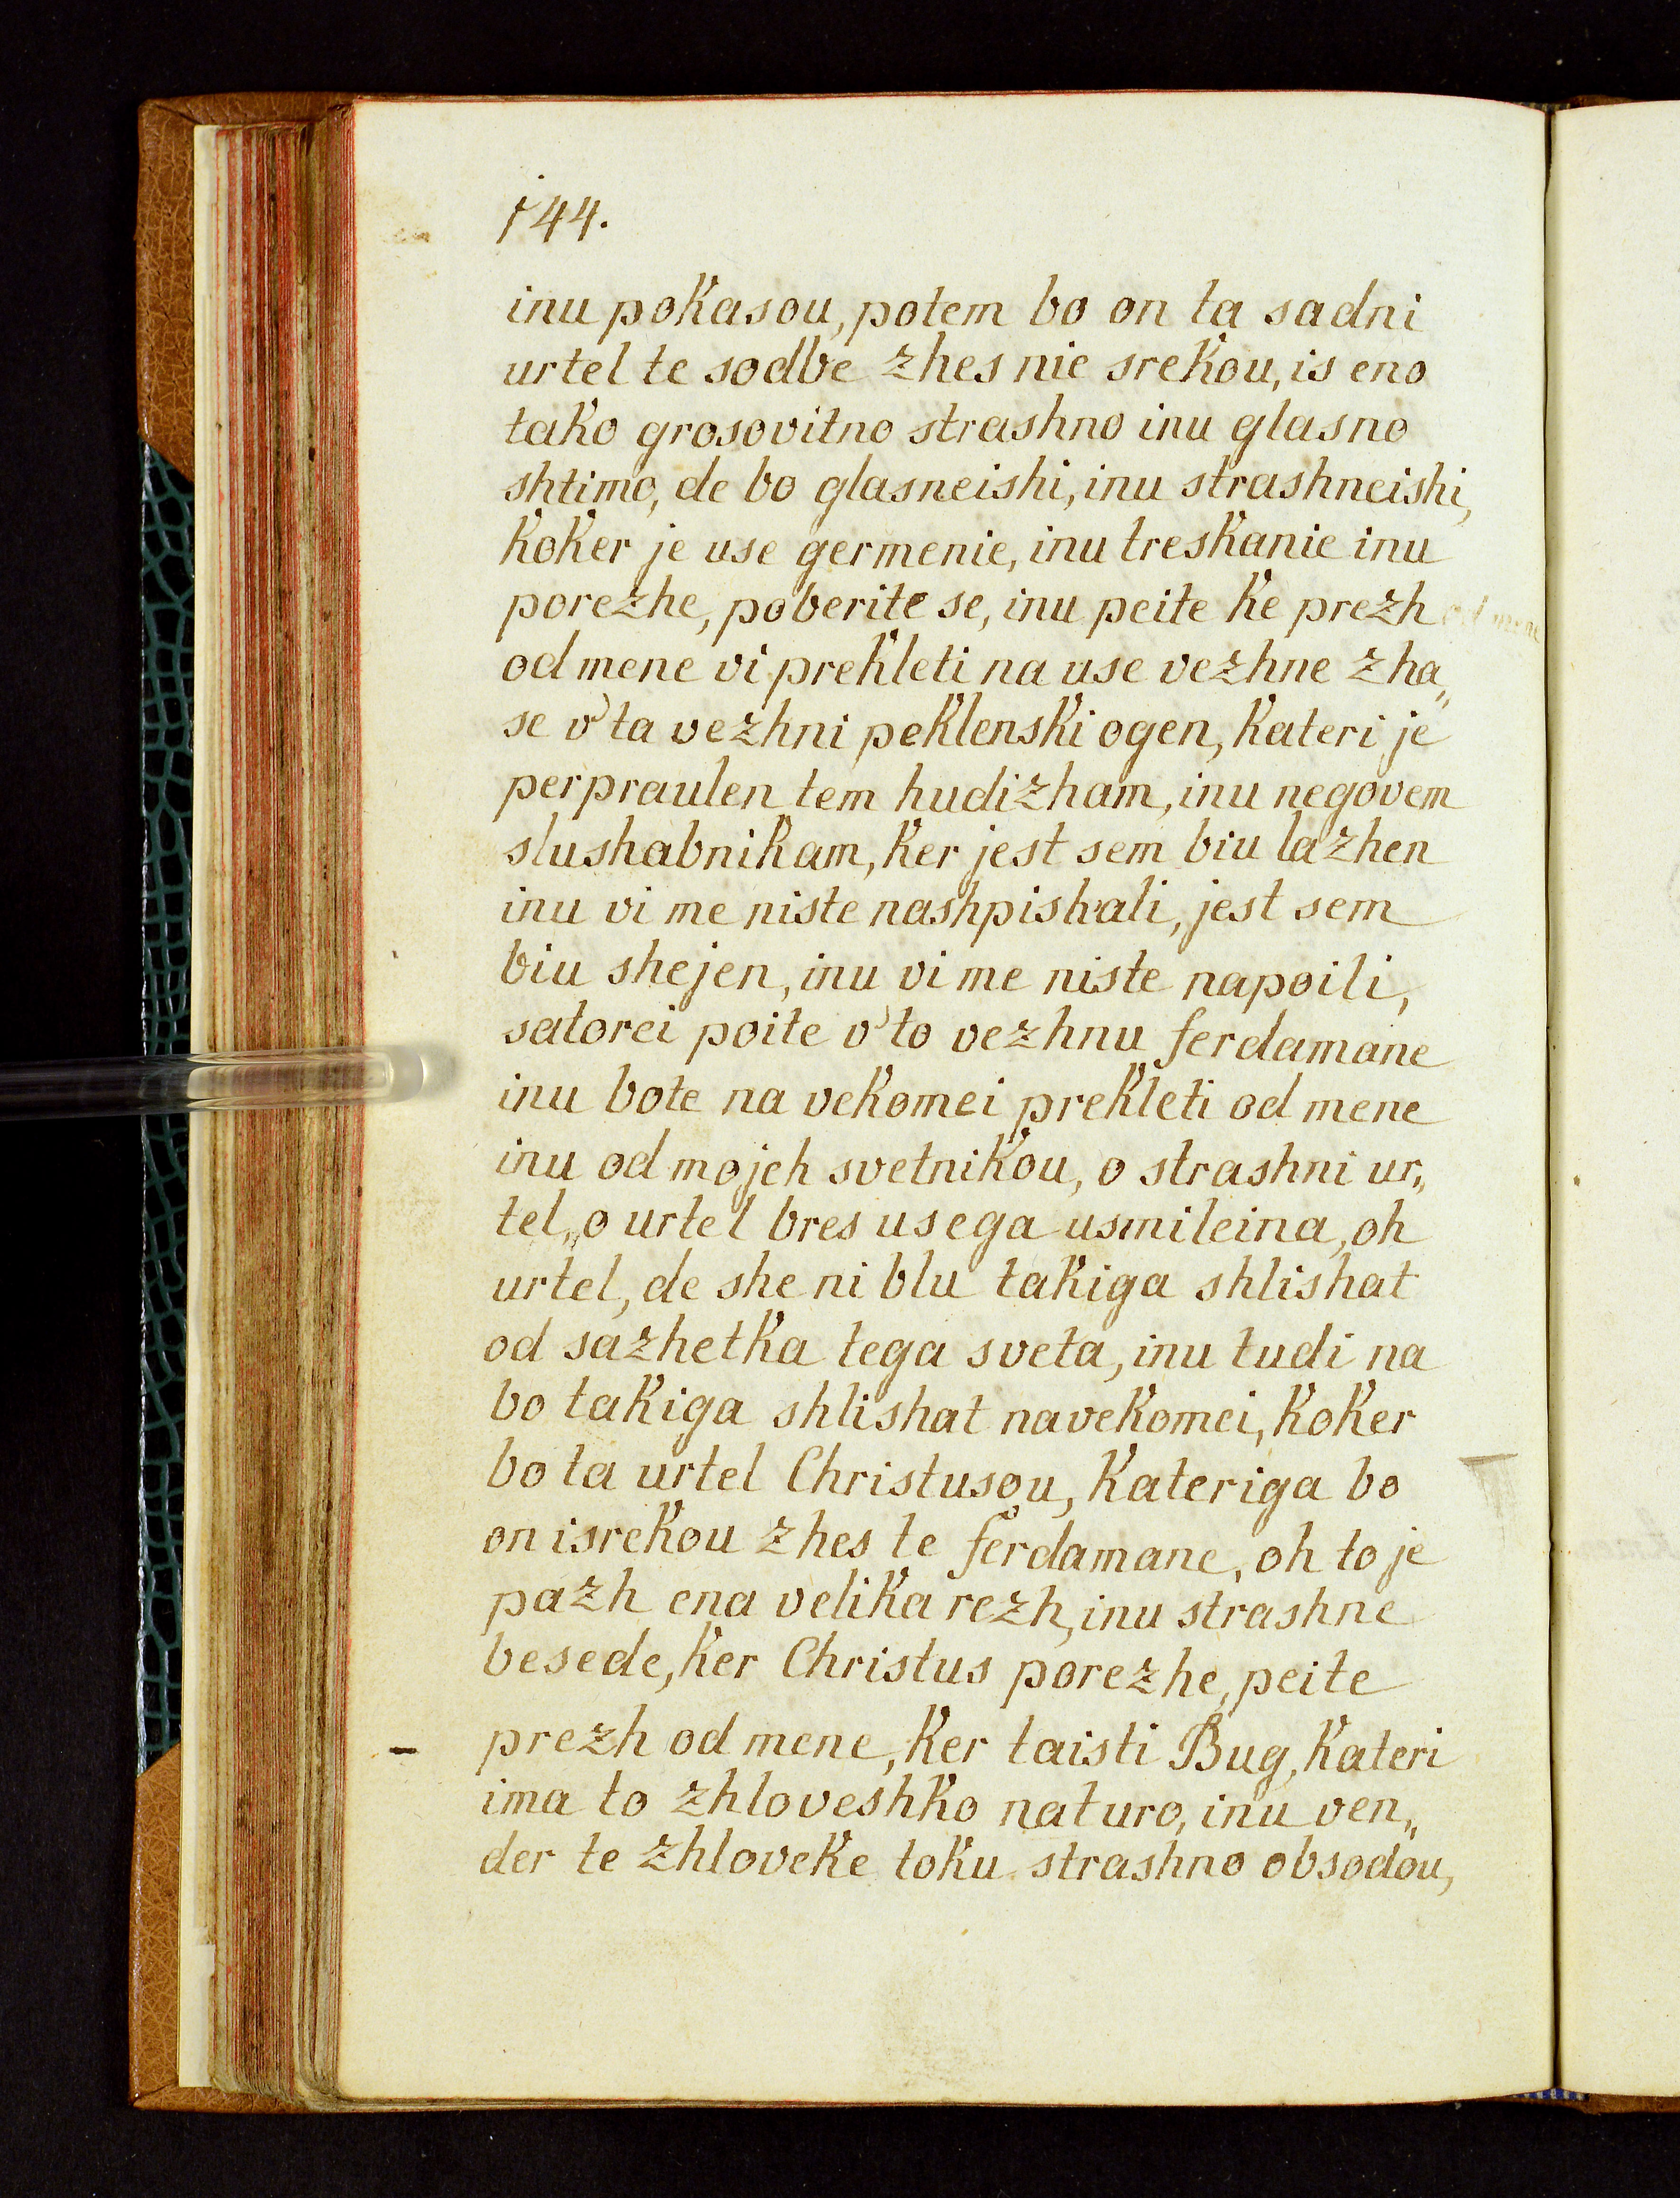 144.
inu pokasou, potem bo on ta sadni
urtel te sodbe zhes nie srekou, is eno
tako grosovitno strashno inu glasno
shtimo, de bo glasneishi, inu strashneishi,
koker je use germenie, inu treskanie inu
porezhe, poberite se, inu peite ke prezh
od mene vi prekleti na use vezhne zha„
se v' ta vezhni peklenski ogen, kateri je
perpraulen tem hudizham, inu negovem
slushabnikam, ker jest sem biu lazhen
inu vi me niste nashpishali, jest sem
biu shejen, inu vi me niste napoili,
satorei poite v' to vezhnu ferdamane
inu bote na vekomei prekleti od mene
inu od mojeh svetnikou, o strashni ur„
tel, o urtel bres usega usmileina, oh
urtel, de she ni blu takiga shlishat
od sazhetka tega sveta, inu tudi na
bo takiga shlishat navekomei, koker
bo ta urtel Christusou, kateriga bo
on isrekou zhes te ferdamane, oh to je
pazh ena velika rezh, inu strashne
besede, ker Christus porezhe, peite
prezh od mene, ker taisti Bug, kateri
ima to zhloveshko naturo, inu ven„
der te zhloveke toku strashno obsodou,